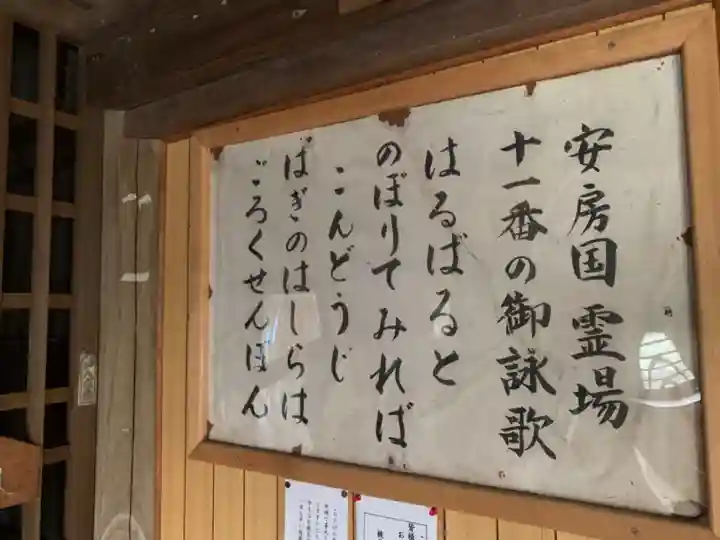 安房国霊場
十一番の御詠歌
はるばると
のぼりてみれば
こんどうじ
はぎのはしらは
ごろくせんぼん